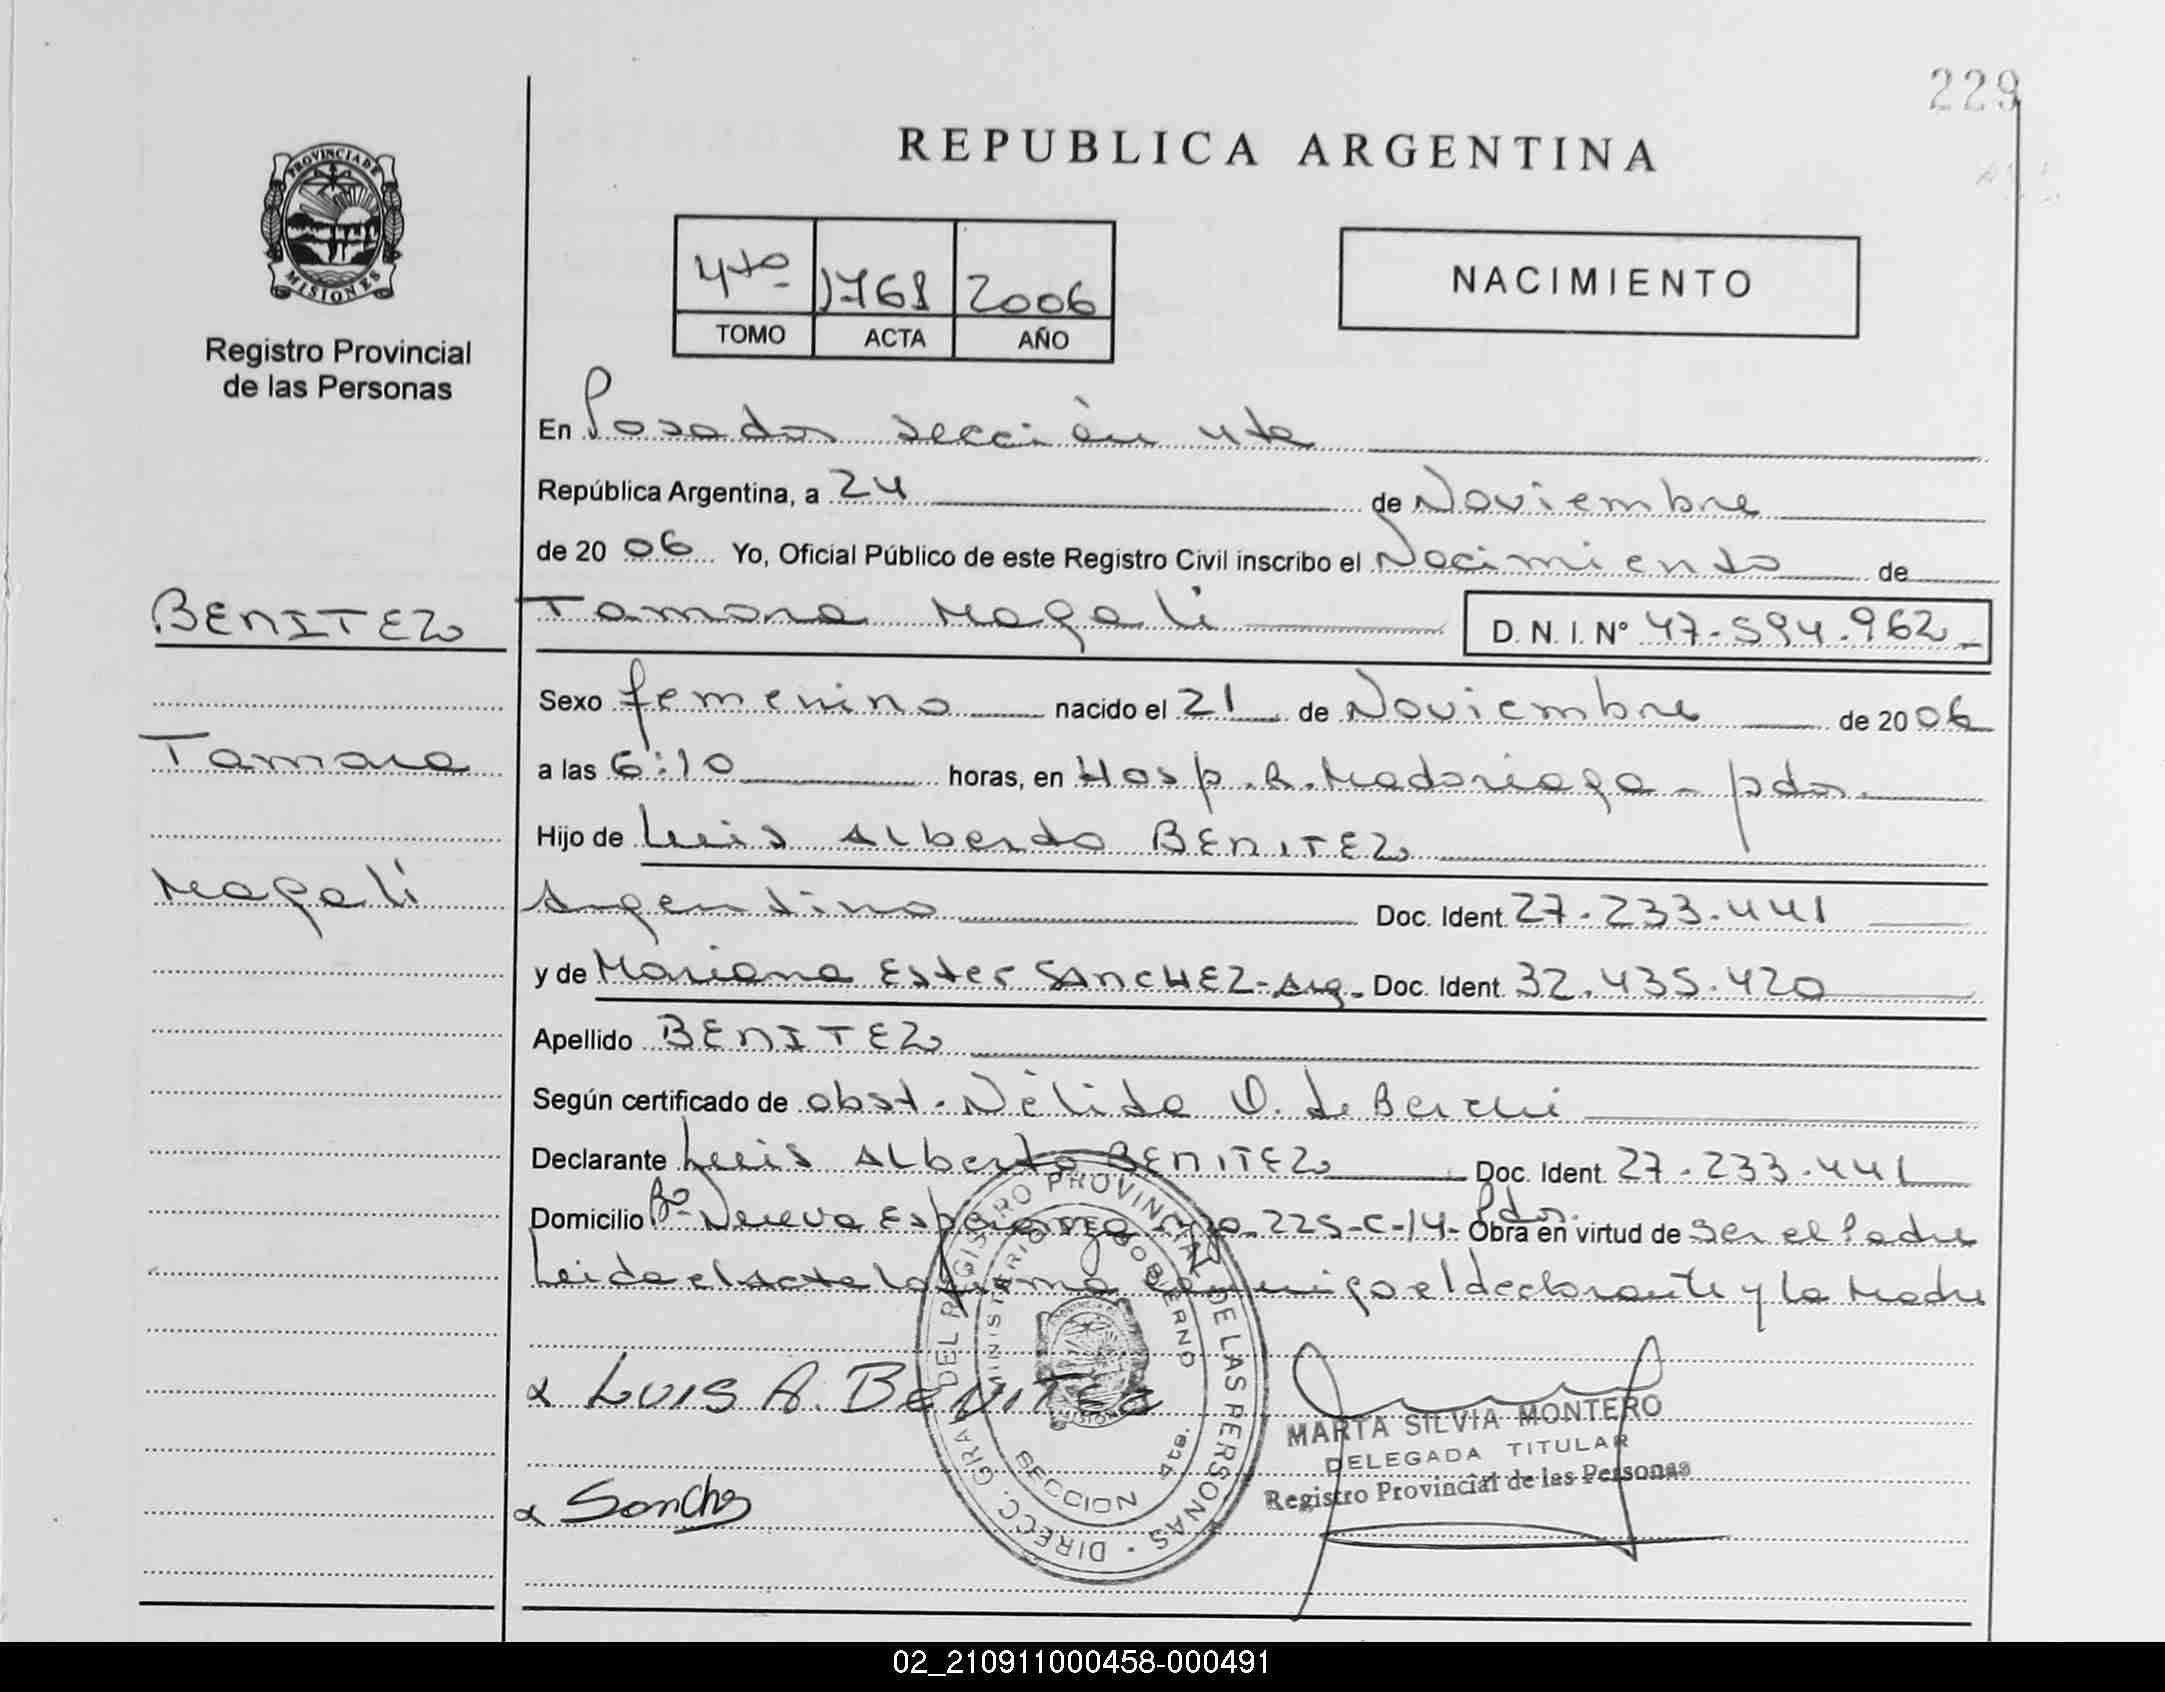 229
REPUBLICA ARGENTINA
PROVINCIA DE
MISIONES
Registro Provincial
de las Personas
4to 1768 2006
TOMO ACTA AÑO
NACIMIENTO
En Posadas sección 4ta
República Argentina, a 24 de Noviembre
de 2006 Yo, Oficial Público de este Registro Civil inscribo el Nacimiento de
BENITEZ Tamara Magali D. N. I. Nº 47.594.962
Sexo femenino nacido el 21 de Noviembre de 2006
Tamara a las 6:10 horas, en Hosp. R. Madariaga - pdas.
Hijo de Luis Alberto BENITEZ
Magalí Argentino Doc. Ident. 27.233.441
y de Mariana Ester SANCHEZ - Arg. Doc. Ident. 32.435.420
Apellido BENITEZ
Según certificado de obst. Nélida O. de
Declarante Luis Alberto BENITEZ Doc. Ident. 27.233.441
Domicilio Bº Nueva Esperanza 225-C-14- Pdas. Obra en virtud de ser el Padre
Leida el acta la firma conmigo el declarante y la Madre
LUIS A. BENITEZ
DIRECC. GRAL. DEL REGISTRO PROVINCIAL DE LAS PERSONAS
MINISTERIO DE GOBIERNO
SECCION 4ta.
MARTA SILVIA MONTERO
DELEGADA TITULAR
Registro Provincial de las Personas
Sanchez
02_210911000458-000491